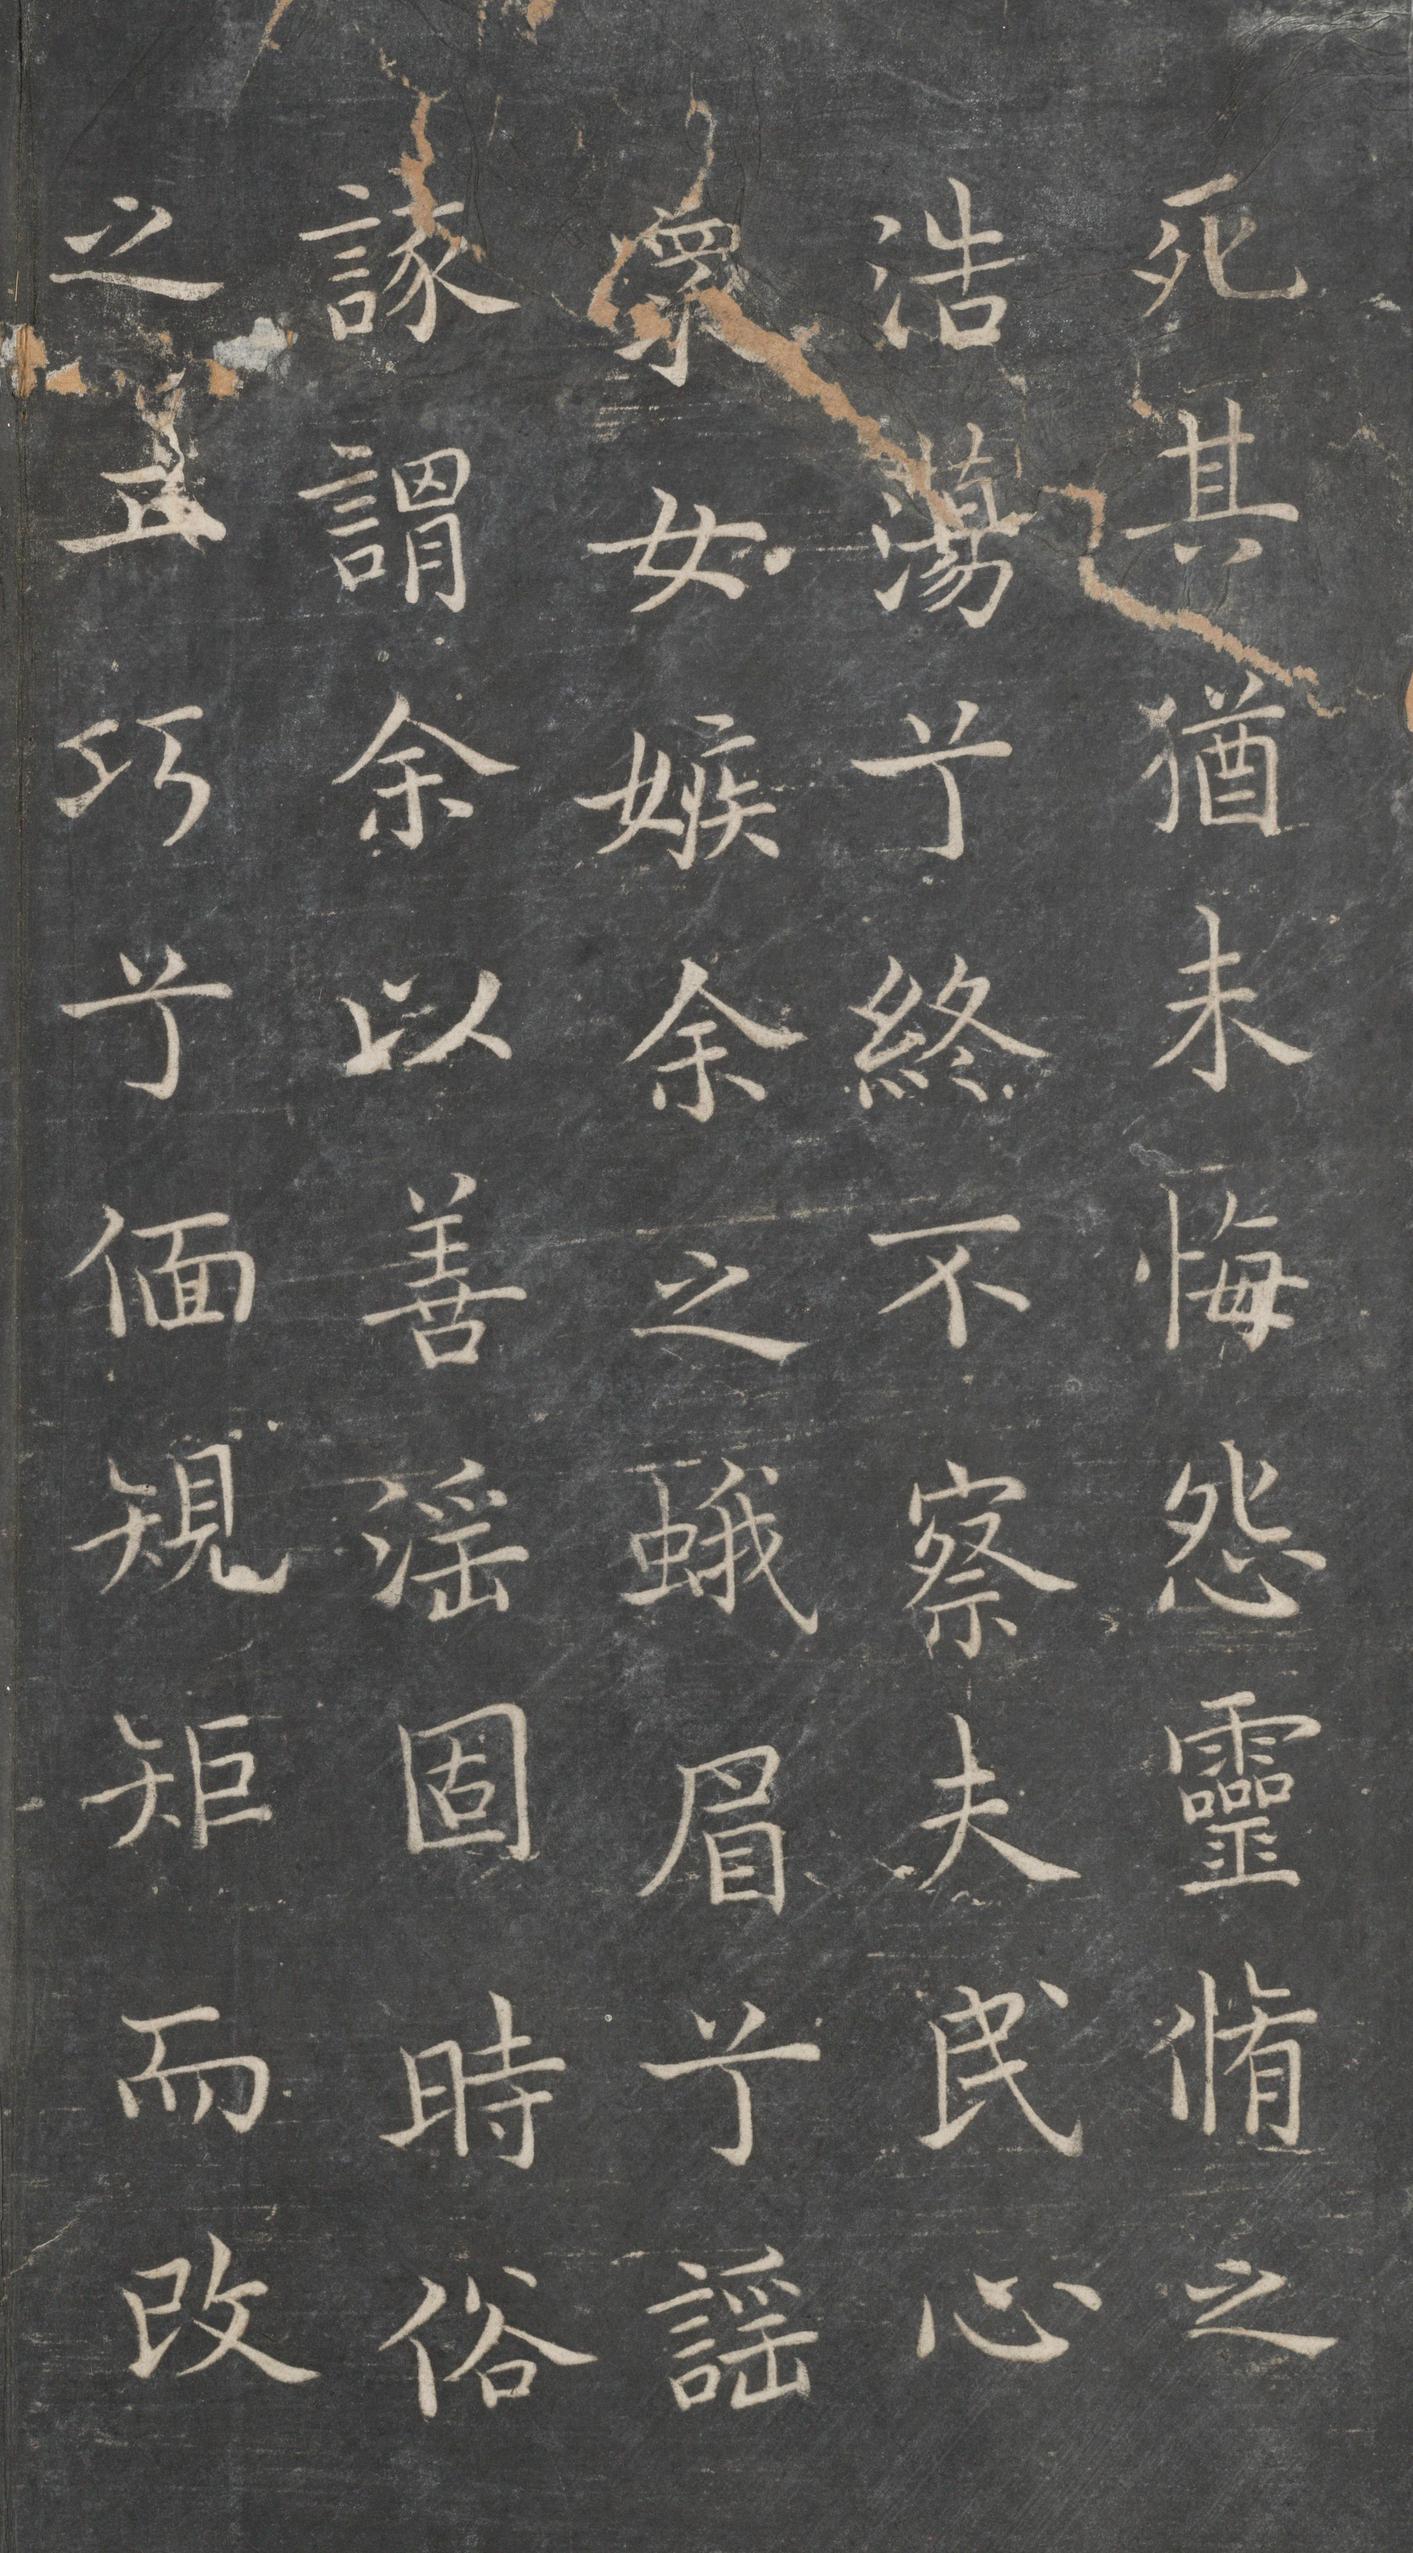 死其猶未悔怨靈脩之
浩蕩兮終不察夫民心
衆女嫉余之蛾眉兮謡
諑謂余以善滛固時俗
之工巧兮偭規矩而改